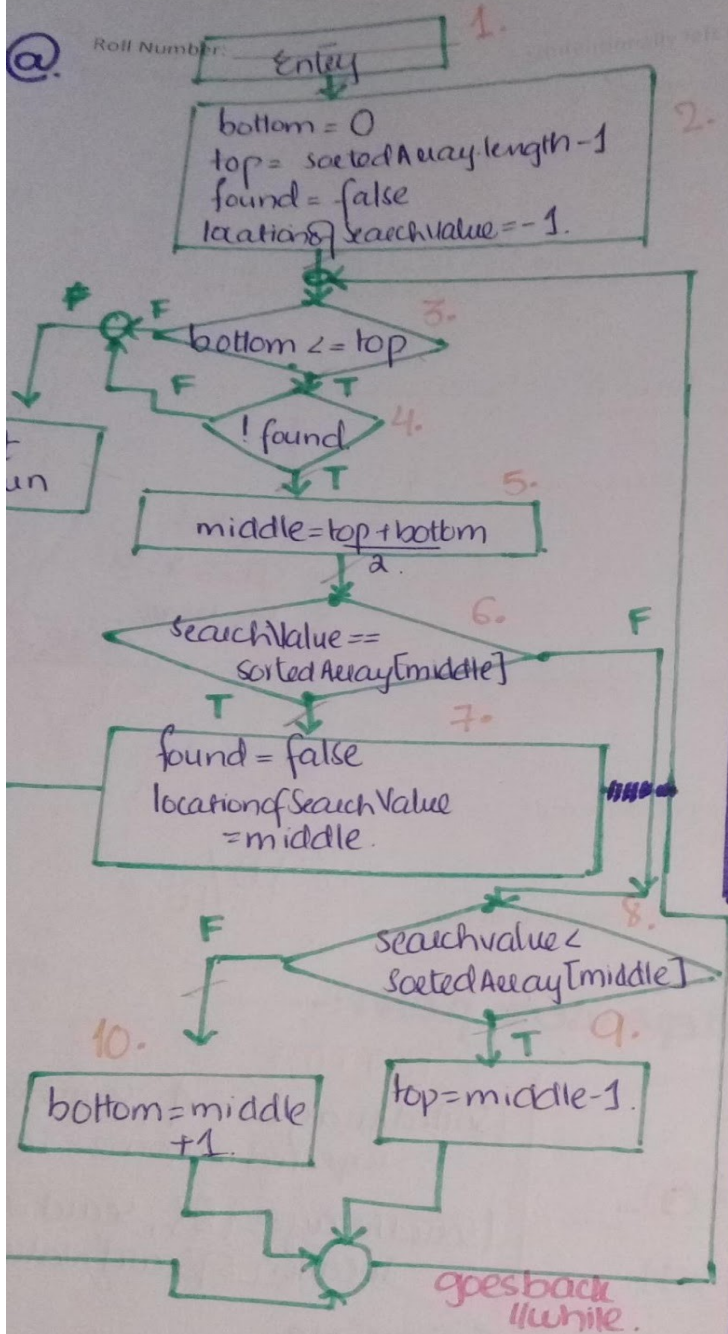 a.
Roll Number:
1.
Entry
2.
bottom = 0
top = sortedArray.length-1
found = false
locationof searchvalue = -1.
F
3.
bottom <= top
F
T
4.
! found
T
un
5.
middle = top + bottom
2.
6.
F
searchValue ==
sorted Array [middle]
T
7.
found = false
locationofSearchValue
= middle.
8.
F
searchvalue <
sortedArray [middle]
T
9.
10.
bottom = middle
+1.
top = middle-1.
goes back
//while.